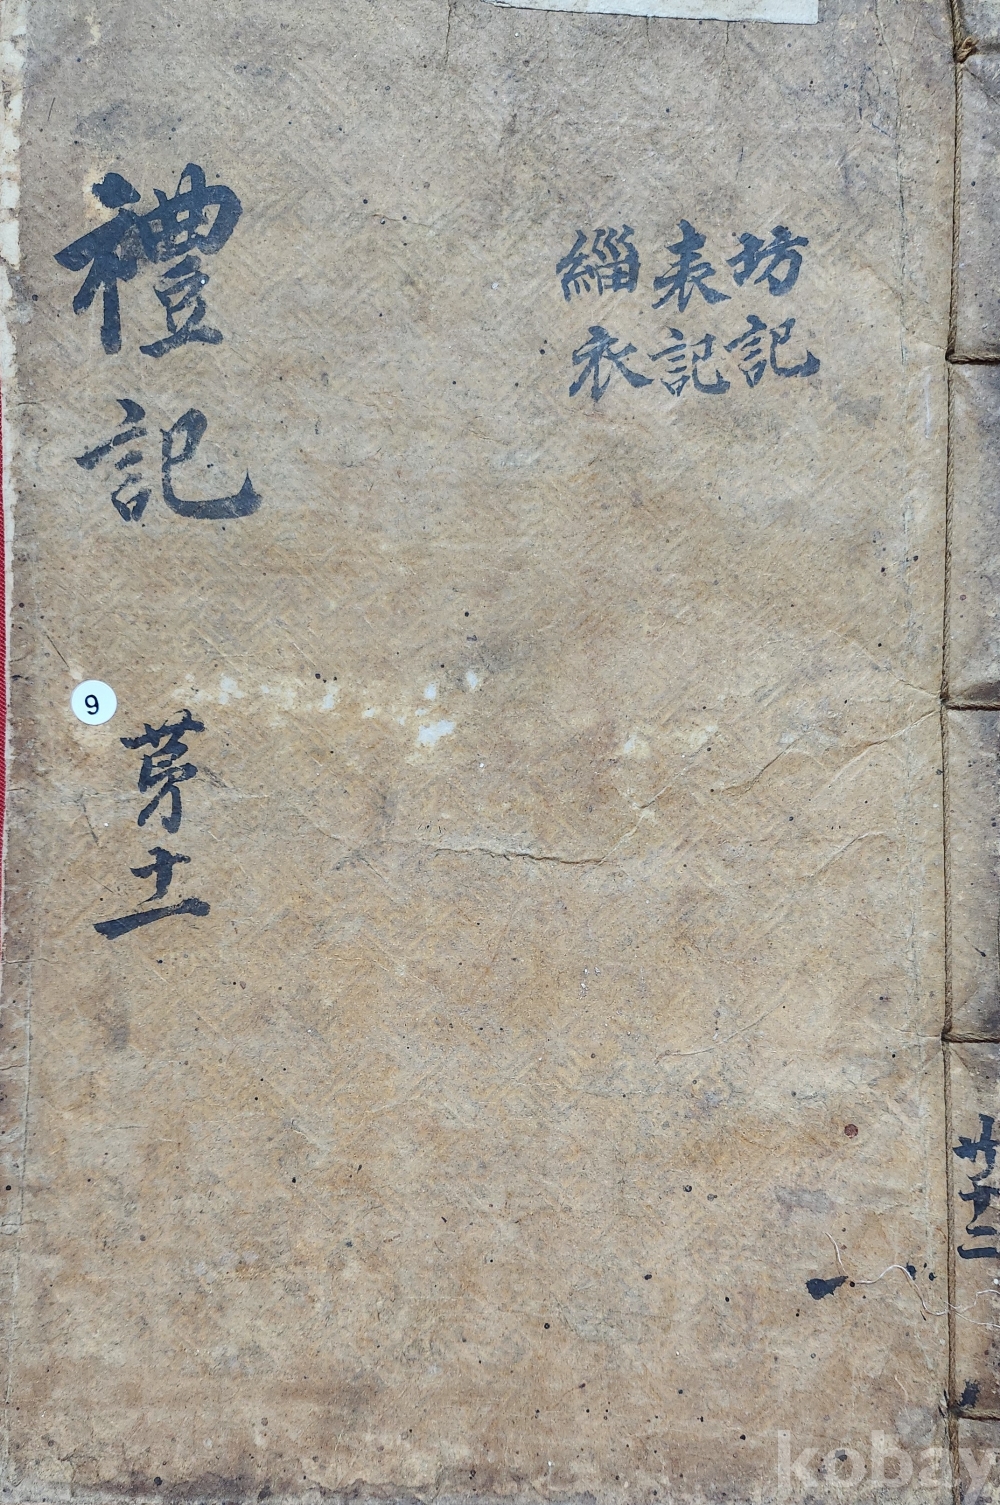 坊記
表記
緇衣
禮記
苐十一
9
共十二
kobay